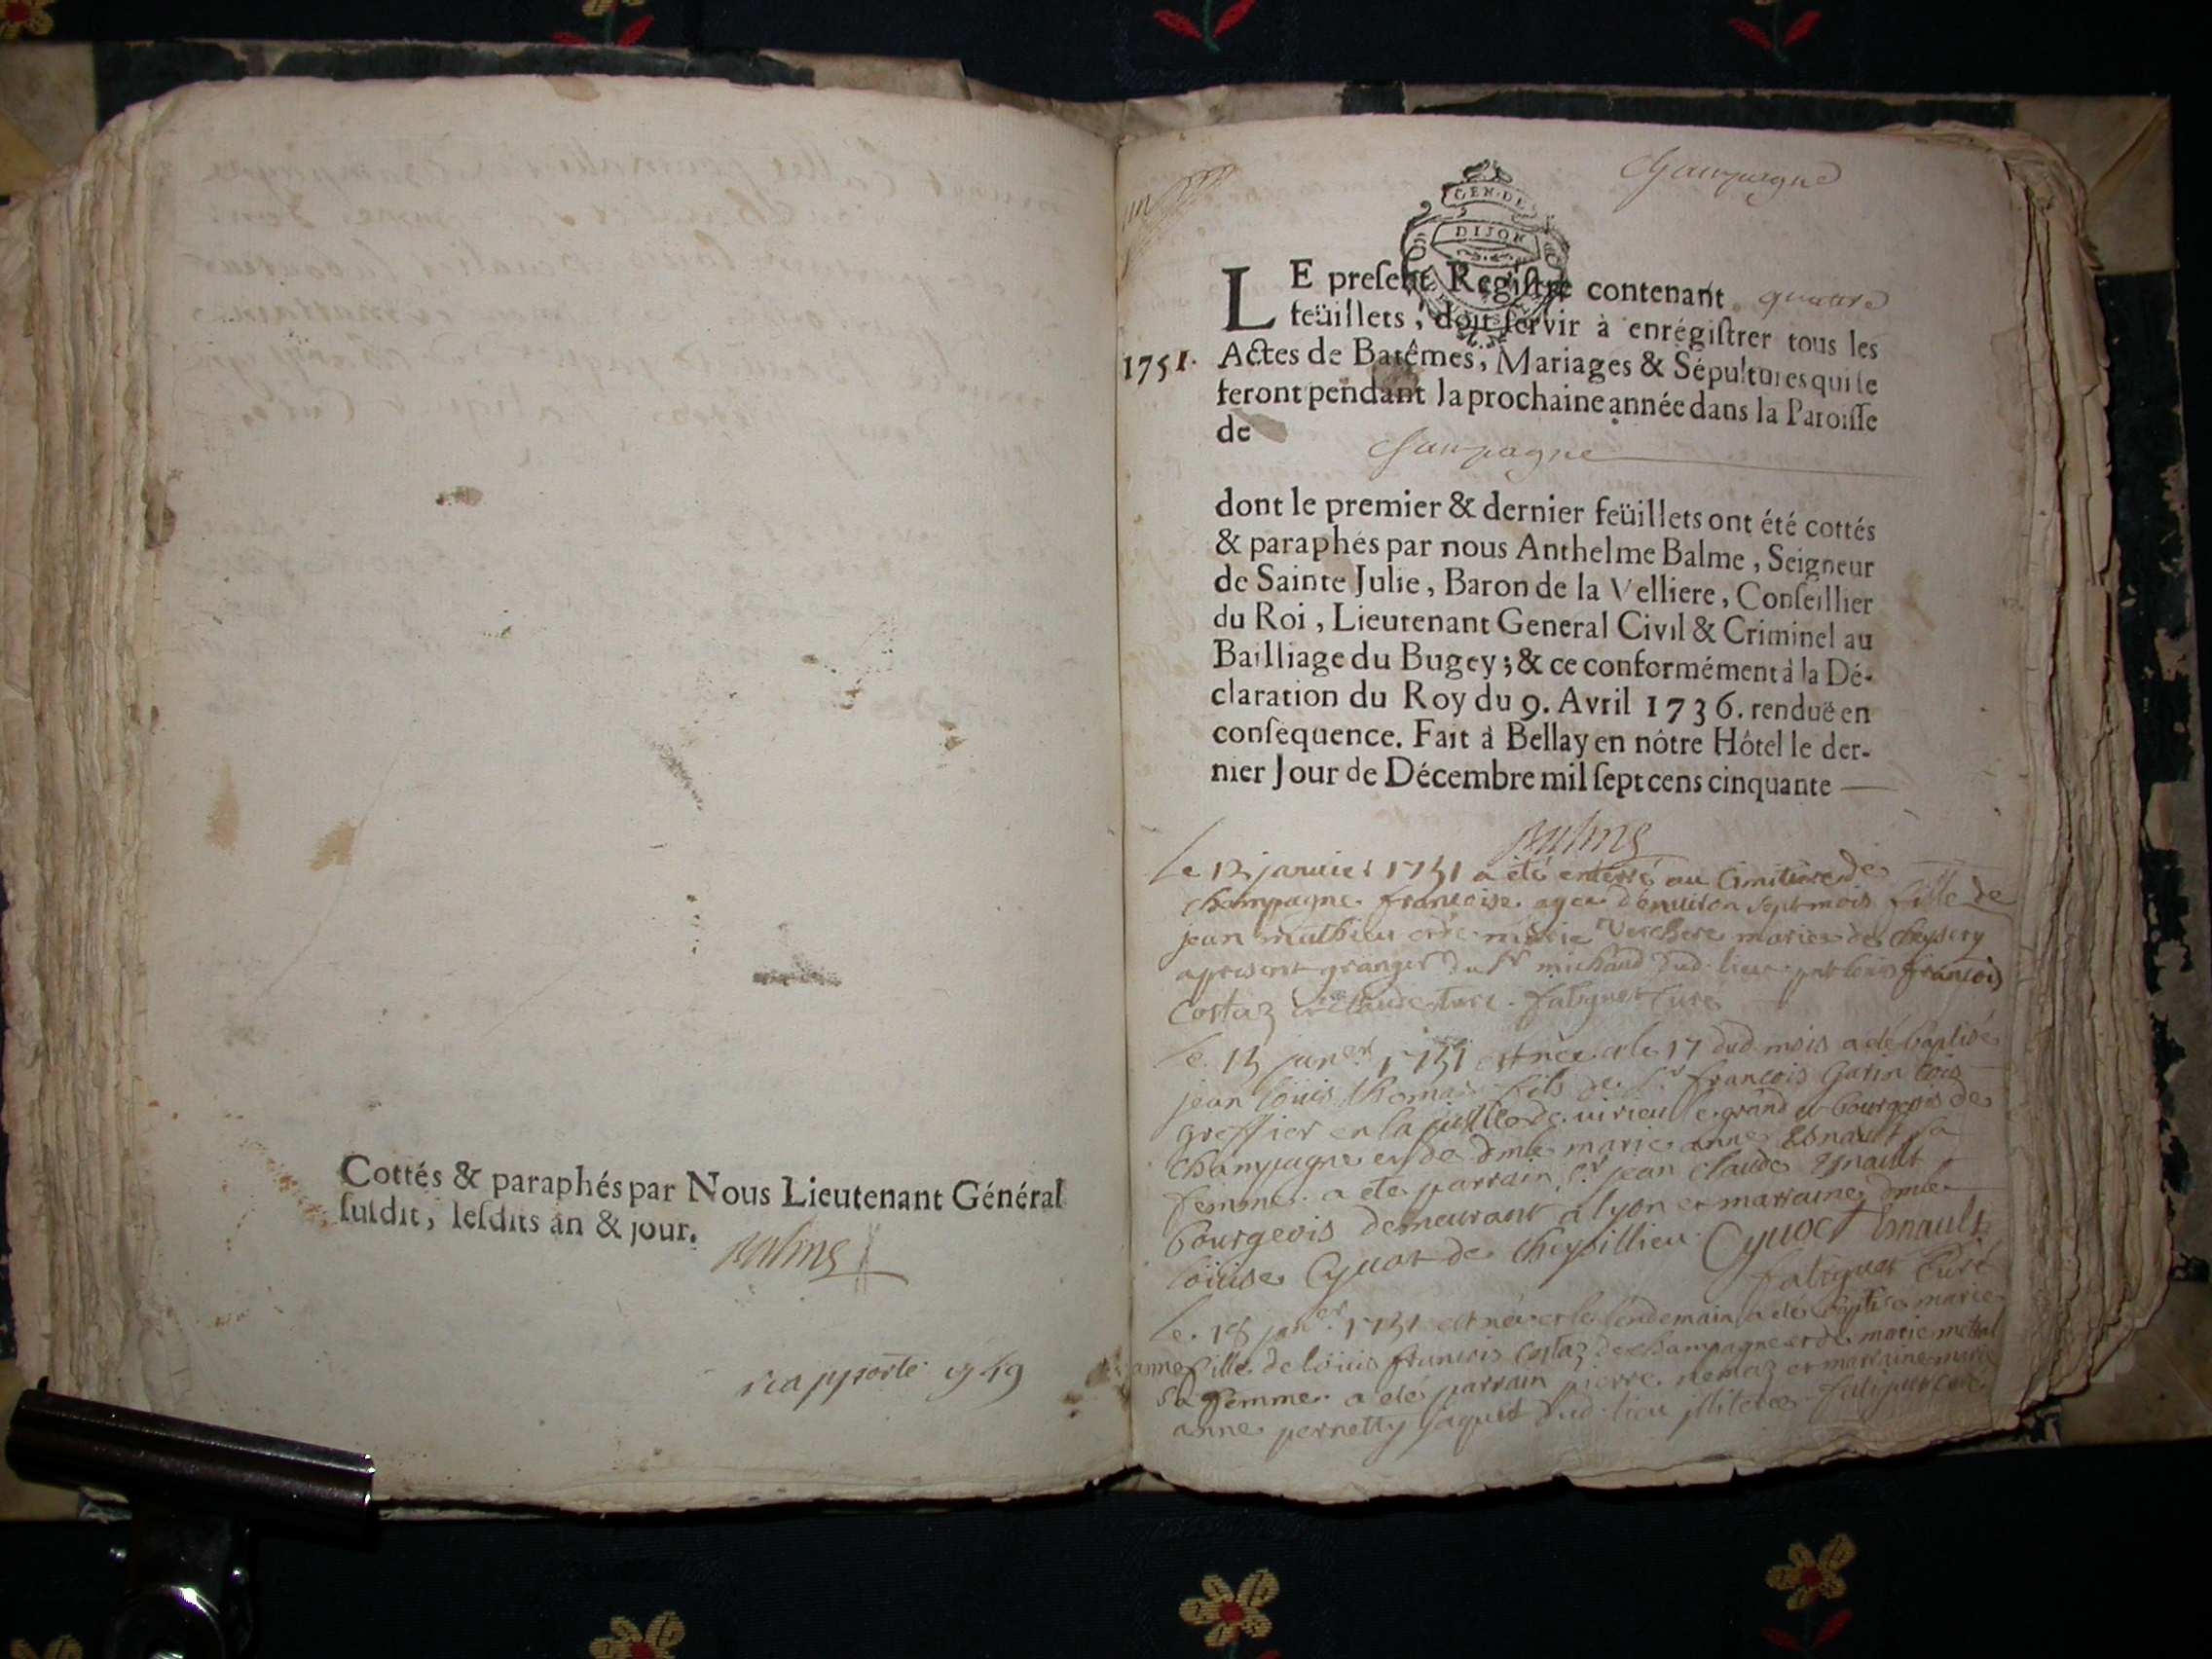 Cottés & paraphés par Nous Lieutenant Général
suſdit, leſdits an & jour.
Balme
rapporté
un
Champagne
GEN·DE
DIJON
LE preſent Regiſtre contenant quatre
feüillets, doit ſervir à enrégiſtrer tous les
1751. Actes de Batêmes, Mariages & Sépultures qui ſe
feront pendant la prochaine année dans la Paroiſſe
de
Champagne
dont le premier & dernier feüillets ont été cottés
& paraphés par nous Anthelme Balme, Seigneur
de Sainte Julie, Baron de la Velliere, Conſeillier
du Roi, Lieutenant General Civil & Criminel au
Bailliage du Bugey; & ce conformément à la Dé-
claration du Roy du 9. Avril 1736. renduë en
conſequence. Fait à Bellay en nôtre Hôtel le der-
nier Jour de Décembre mil ſept cens cinquante —
Balme
Le 12 janvier 1751 a été enterré au cimitiere de
champagne francoise agée d'environ sept mois fille de
jean mathieu et de marie Verchere mariés de cheysery
apresent granger du Sr michaud dud. lieu louis françois
Costaz et claude curé
le 15 janer 1751 est né et le 17 dud mois a été baptisé
jean loüis thomas fils de Sr françois Garin
greffier en la justice de virieu le grand et bourgeois de
Champagne et de dmlle marie anne Esnault sa
femme a eté parrain Sr jean claude Esnault
bourgeois demeurant a lyon et marraine dmlle
loüise Cyuot de cheysillieu Cyuoct Esnault
Curé
le 18 janer 1751 est née et le lendemain a eté baptisé marie
anne fille de loüis françois Costaz de champagne et de marie
sa femme a eté parrain pierre et marraine marie
anne pernetty jaquet dud. lieu illiteres